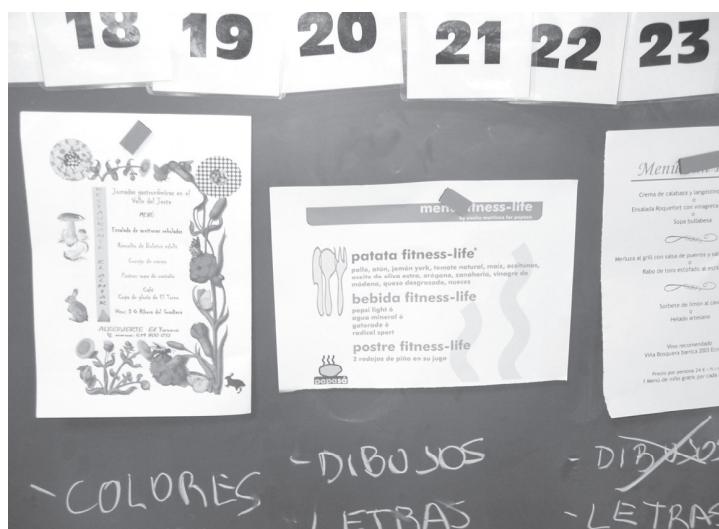 18 19 20 21 22 23
Jornadas gastronómicas en el
Valle del Jerte
MENÚ
Ensalada de aceitunas
Café
menú fitness-life
patata fitness-life
pollo, atún, jamón york, tomate natural, maíz, aceitunas,
aceite de oliva extra, orégano, zanahoria, vinagre de
módena, queso desgrasado, nueces
bebida fitness-life
pepsi light ó
agua mineral ó
gatorade ó
radical sport
postre fitness-life
2 rodajas de piña en su jugo
papasá
Menú
Crema de calabaza y langostinos
o
Ensalada Roquefort con vinagreta
o
Sopa bullabesa
Merluza al grill con salsa de puerros y
o
Rabo de toro estofado al
Sorbete de limón al
o
Helado artesano
Vino recomendado
Viña Bosquera barrica 2003
Precio por persona 24 €
1 Menú de niño gratis por cada
- COLORES
- DIBUJOS
LETRAS
- DIBUJOS
- LETRAS